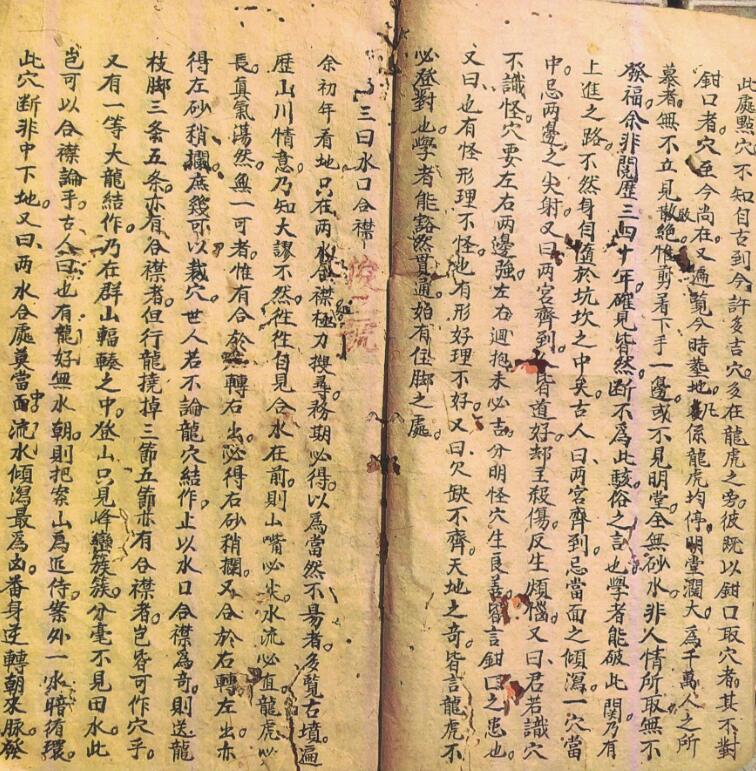 此處點穴不知自古到今許多吉穴多在龍虎之旁彼既以鉗口取穴者其不對
鉗口者穴至今尚在又遍覽今時墓地凡係龍虎均停明堂濶大為千萬人之所
慕者無不立見敗絕惟剪著下手一邊或不見明堂全無砂水非人情所取無不
發福余非閱歷三四十年確見皆然斷不為此駭俗之言也學者能破此関乃有
上進之路不然身自墮於坑坎之中矣古人曰兩宮齊到忌當面之傾瀉一穴當
中忌兩邊之尖射又曰兩宮齊到皆道好却主殺傷反生煩惱又曰君若識穴
不識怪穴要左右兩邊強左右迴抱未必吉分明怪穴生良善皆言鉗口之患也
又曰也有怪形理不怪也有形好理不好又曰欠缺不齊天地之奇皆言龍虎不
必登對也學者能豁然貫通始有住脚之處
三曰水口合襟
余初年看地只在兩水合襟極力搜尋務期必得以為當然不易者多覧古墳遍
歷山川情意乃知大謬不然徃徃自見合水在前則山嘴必尖水流必直龍虎必
長真氣蕩然無一可者惟有合於轉右出必得右砂稍攔又合於右轉左出亦
得左砂稍攔庶幾可以裁穴世人若不論龍穴結作止以水口合襟為奇則送龍
枝脚三条五条亦有合襟者但行龍撓掉三節五節亦有合襟者豈皆可作穴乎
又有一等大龍結作乃在群山輻輳之中登山只見峰巒簇簇分毫不見田水此
豈可以合襟論乎古人曰也有龍好無水朝則把案山為近侍案外一水暗循環
此穴斷非中下地又曰兩水合處莫當中面流水傾瀉最為凶番身逆轉朝來脉發